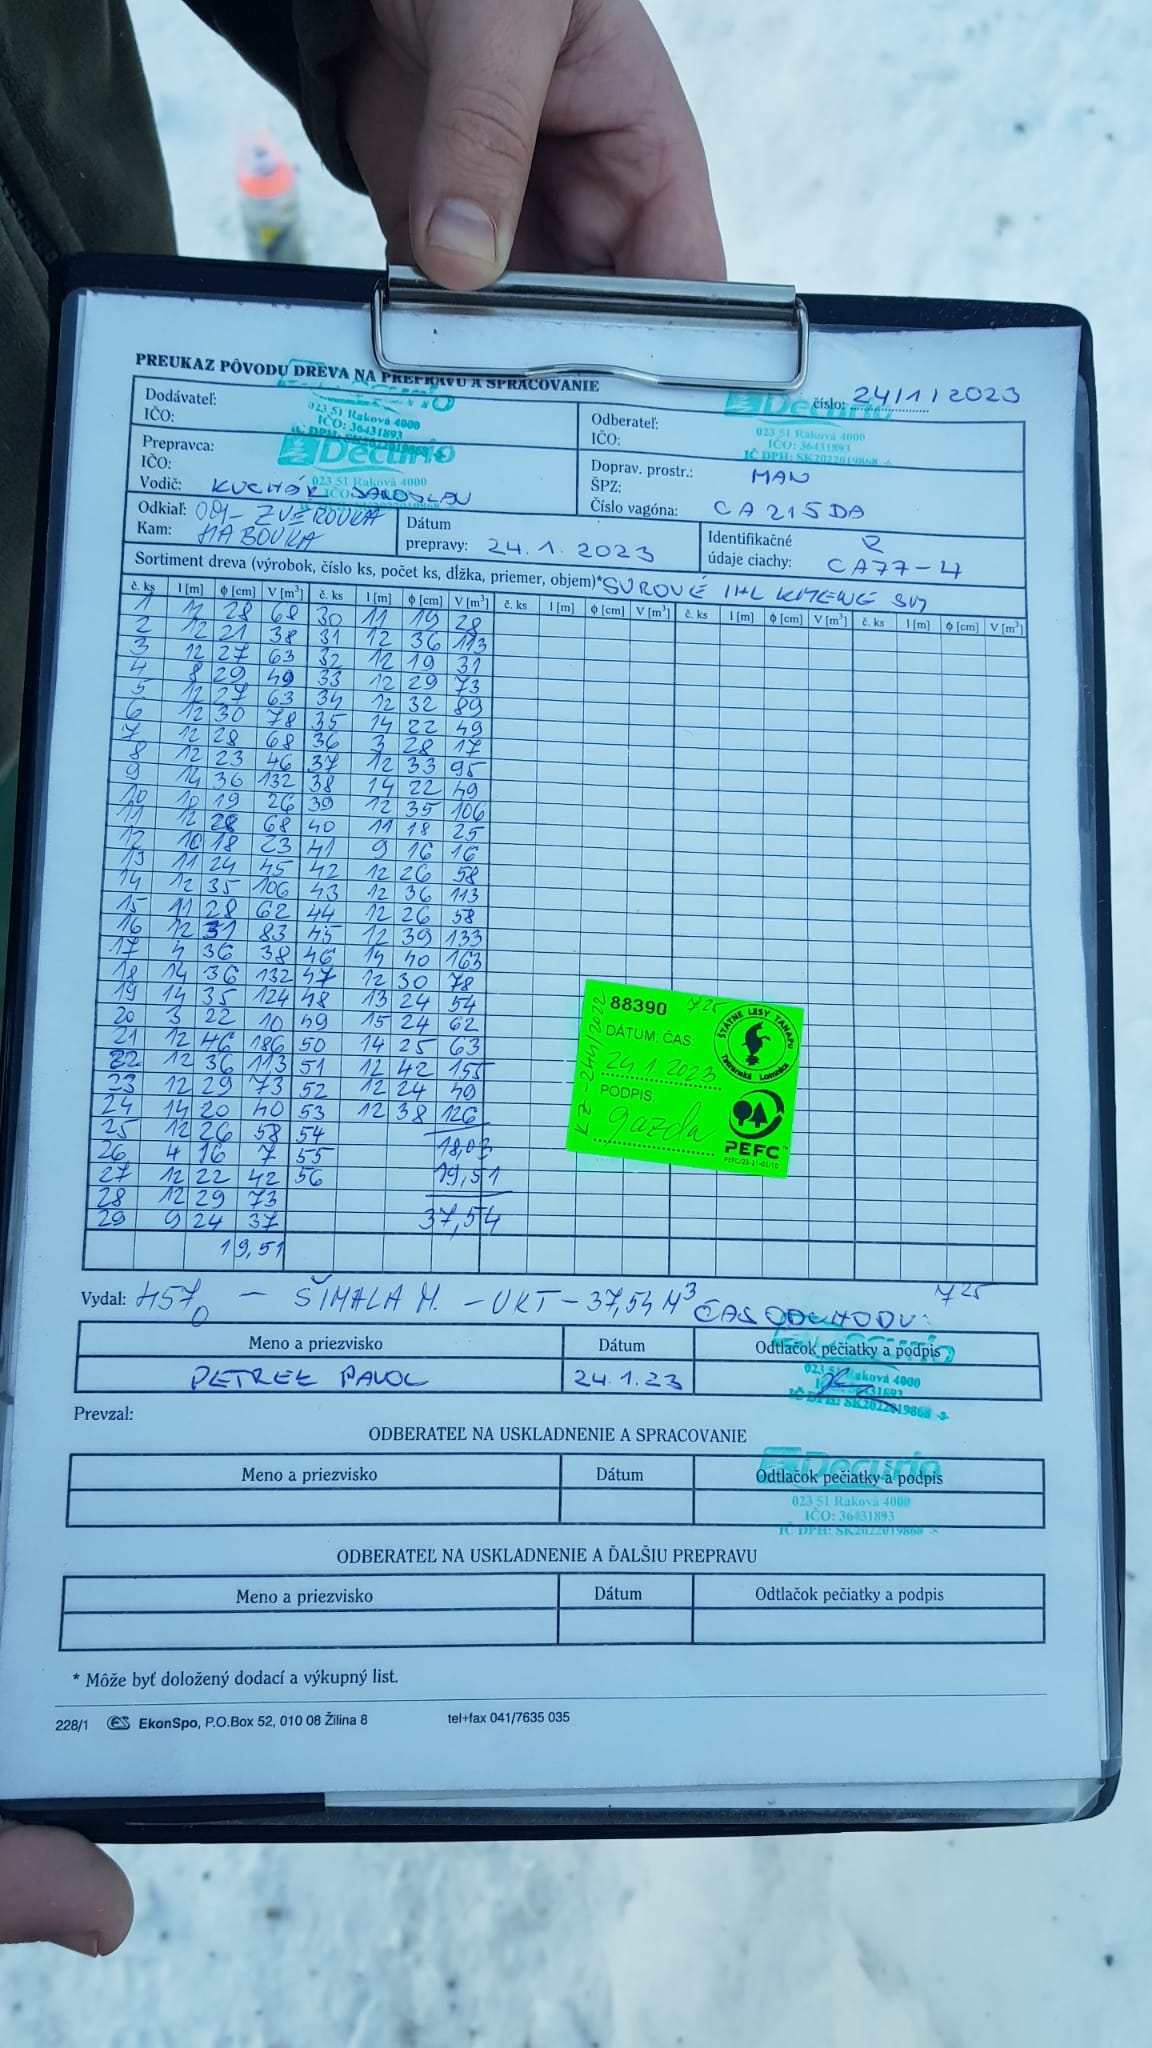 PREUKAZ PÔVODU DREVA NA PREPRAVU A SPRACOVANIE
číslo: 24/1/2023
Dodávateľ:
IČO:
023 51 Raková 4000
IČO: 36431893
IČ DPH: SK2022019868
Odberateľ:
IČO:
Decurio
023 51 Raková 4000
IČO: 36431893
IČ DPH: SK2022019868
Prepravca:
IČO:
Decurio
023 51 Raková 4000
Vodič: KUCHÁR JAROSLAV
Doprav. prostr.: MAN
ŠPZ:
Číslo vagóna: CA215DA
Odkiaľ: ZVEROVKA
Kam: HABOVKA
Dátum
prepravy: 24.1.2023
Identifikačné
údaje ciachy: CA77-4
Sortiment dreva (výrobok, číslo ks, počet ks, dĺžka, priemer, objem)* SUROVÉ IHL KMENE
č. ks l [m] ϕ [cm] V [m³] č. ks l [m] ϕ [cm] V [m³] č. ks l [m] ϕ [cm] V [m³] č. ks l [m] ϕ [cm] V [m³] č. ks l [m] ϕ [cm] V [m³]
1 11 28 68 30 11 19 28
2 12 21 38 31 12 36 113
3 12 27 63 32 12 19 31
4 8 29 49 33 12 29 73
5 12 27 63 34 12 32 89
6 12 30 78 35 14 22 49
7 12 28 68 36 3 28 17
8 12 23 46 37 12 33 95
9 14 36 132 38 14 22 49
10 10 19 26 39 12 35 106
11 12 28 68 40 11 18 25
12 10 18 23 41 9 16 16
13 11 24 45 42 12 26 58
14 12 35 106 43 12 36 113
15 11 28 62 44 12 26 58
16 12 31 83 45 12 39 133
17 4 36 38 46 14 40 163
18 14 36 132 47 12 30 78
19 14 35 124 48 13 24 54
20 3 22 10 49 15 24 62
21 12 46 186 50 14 25 63
22 12 36 113 51 12 42 155
23 12 29 73 52 12 24 49
24 14 20 40 53 12 38 126
25 12 26 58 54
26 4 16 7 55 18,03
27 12 22 42 56 19,51
28 12 29 73
29 9 24 37 37,54
19,51
88390 725
DÁTUM, ČAS
24.1.2023
PODPIS
gazda
ŠTÁTNE LESY TANAPU
Tatranská Lomnica
PEFC™
PEFC/23-21-02/10
Vydal: - ŠIMALA M. - UKT - 37,54 M³ ČAS ODCHODU: 7 25
Meno a priezvisko Dátum Odtlačok pečiatky a podpis
PETREK PAVOL 24.1.23
Prevzal:
ODBERATEĽ NA USKLADNENIE A SPRACOVANIE
Meno a priezvisko Dátum Odtlačok pečiatky a podpis
Decurio
023 51 Raková 4000
IČO: 36431893
IČ DPH: SK2022019868
ODBERATEĽ NA USKLADNENIE A ĎALŠIU PREPRAVU
Meno a priezvisko Dátum Odtlačok pečiatky a podpis
* Môže byť doložený dodací a výkupný list.
228/1 ES EkonSpo, P.O.Box 52, 010 08 Žilina 8 tel+fax 041/7635 035